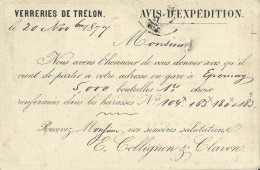 VERRERIES DE TRÉLON. AVIS D'EXPÉDITION.
le 20 Novbre 1877
Monsieur
Nous avons l'honneur de vous donner avis qu'il
vient de partir à votre adresse en gare à Epernay
5,000 bouteilles 1er choix
renfermées dans les harasses Nos 104. 163. 180 & 183.
Recevez, Monsieur, nos sincères salutations
E. Collignon & Clavon